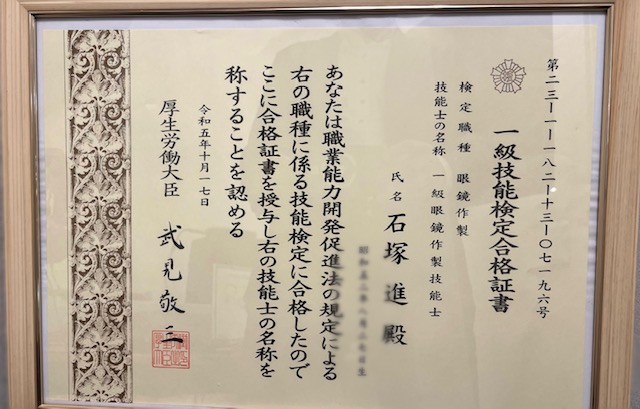 第二三-一-一八二-十三-〇七一九六号
一級技能検定合格証書
検定職種 眼鏡作製
技能士の名称 一級眼鏡作製技能士
氏名 石塚進殿
あなたは職業能力開発促進法の規定による
右の職種に係る技能検定に合格したので
ここに合格証書を授与し右の技能士の名称を
称することを認める
令和五年十月一七日
厚生労働大臣 武見敬三